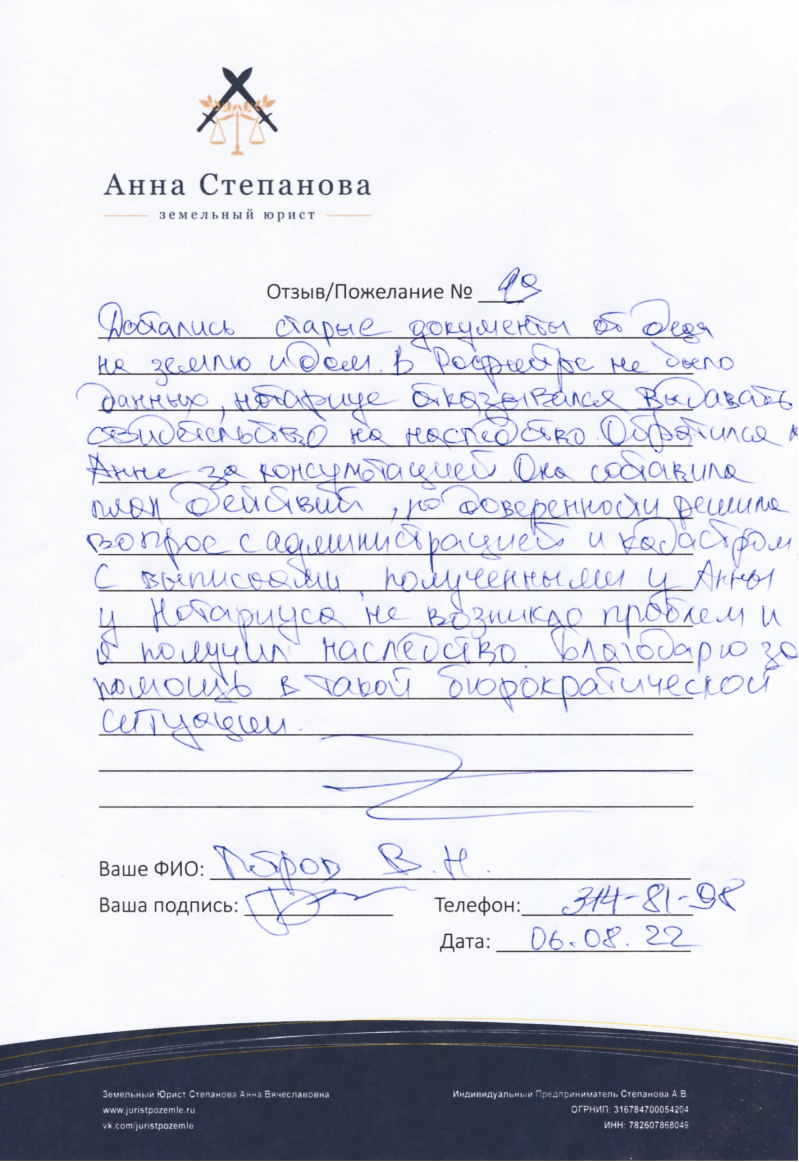 Анна Степанова
земельный юрист
Отзыв/Пожелание № 19
Достались старые документы от деда
на землю и дом. В Росреестре не было
данных, нотариус отказывался выдавать
свидетельство на наследство. Обратился к
Анне за консультацией. Она составила
план действий, по доверенности решила
вопрос с администрацией и кадастром.
С выписками, полученными у Анны
у Нотариуса не возникло проблем и
я получил наследство. Благодарю за
помощь в такой бюрократической
ситуации.
Ваше ФИО: Петров В. Н.
Ваша подпись: Телефон: 314-81-98
Дата: 06.08.22
Земельный Юрист Степанова Анна Вячеславовна
www.juristpozemle.ru
vk.com/juristpozemle
Индивидуальный Предприниматель Степанова А.В.
ОГРНИП: 316784700054204
ИНН: 782607868049